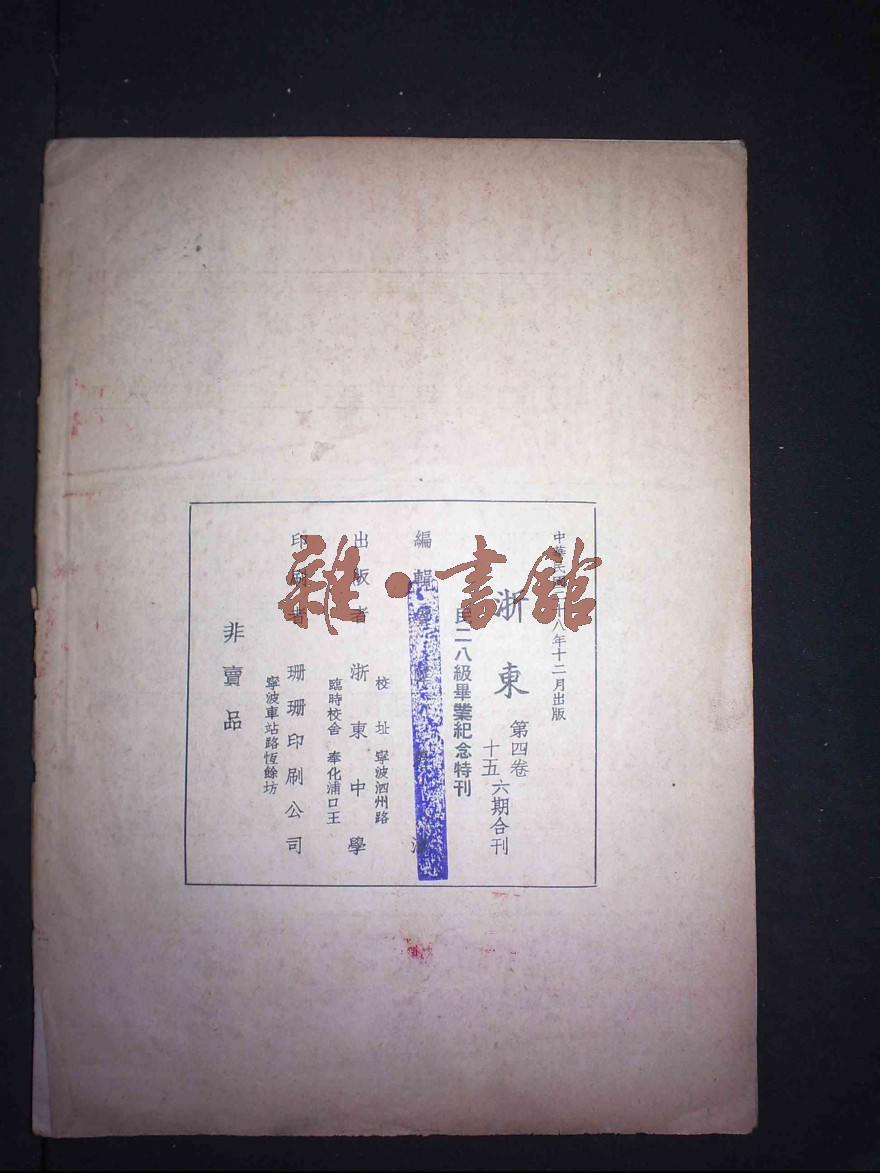 中華民國二十八年十二月出版
浙東
第四卷
十五六期合刊
民二八級畢業紀念特刊
編輯
出版者 浙東中學
校址 寧波泗州路
臨時校舍 奉化浦口王
印刷者 珊珊印刷公司
寧波車站路恆餘坊
非賣品
雜·書館